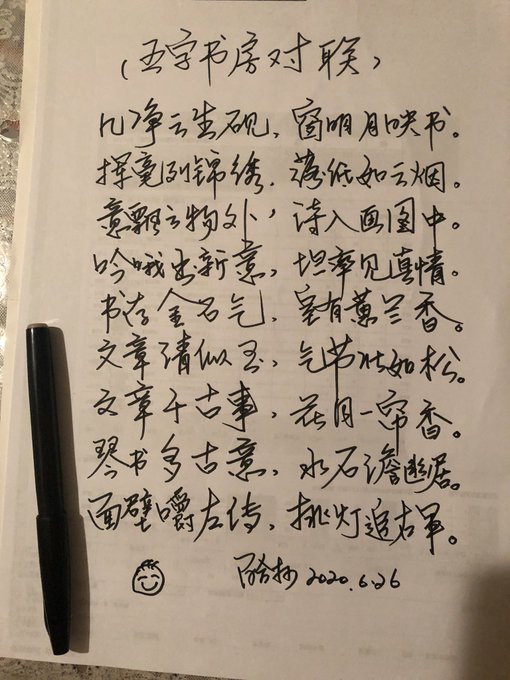 （五字书房对联）
几净云生砚，窗明月映书。
挥毫列锦绣，落纸如云烟。
意飘云物外，诗入画图中。
吟哦出新意，坦率见真情。
书存金石气，室有蕙兰香。
文章清似玉，气节壮如松。
文章千古事，花月一帘香。
琴书多古意，水石澹幽居。
面壁嚼左传，挑灯追右军。
抄 2020.6.26